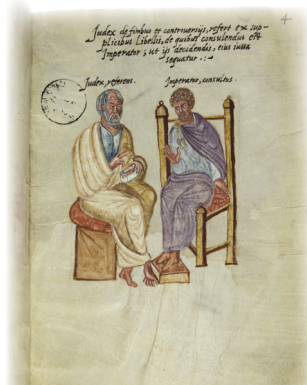 4
Judex de finibus et controversijs, refert ex sup-
plicibus Libellis, de quibus consulendus est
Imperator; ut ijs decidendis, eius iussa
sequatur .:~
Judex, referens.
Imperator, consulens.